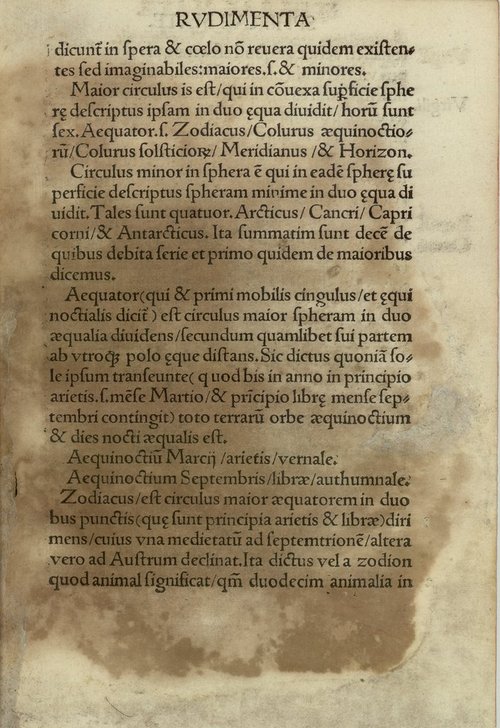 RVDIMENTA
dicunt᷑ in spera & cœlo nõ reuera quidem existen⸗
tes sed imaginabiles:maiores.s.& minores.
Maior circulus is est/qui in cõuexa suꝑficie sphe
rę descriptus ipsam in duo ęqua diuidit/horũ sunt
sex. Aequator.s. Zodiacus/Colurus æquinoctio⸗
rũ/Colurus solsticioꝝ/ Meridianus /& Horizon.
Circulus minor in sphera ẽ qui in eadẽ spherę su
perficie descriptus spheram minime in duo ęqua di
uidit.Tales sunt quatuor. Arcticus/ Cancri/ Capri
corni/& Antarcticus. Ita summatim sunt decẽ de
quibus debita serie et primo quidem de maioribus
dicemus.
Aequator(qui & primi mobilis cingulus/et ęqui
noctialis dicit᷑) est circulus maior spheram in duo
æqualia diuidens/secundum quamlibet sui partem
ab vtroqꝫ polo ęque distans. Sic dictus quoniã so⸗
le ipsum transeunte( quod bis in anno in principio
arietis.s.mẽse Martio/& prĩcipio librę mense sep⸗
tembri contingit) toto terrarũ orbe æquinoctium
& dies nocti æqualis est.
Aequinoctiũ Marcij /arietis/vernale.
Aequinoctium Septembris/libræ/authumnale.
Zodiacus/est circulus maior æquatorem in duo
bus punctis(quę sunt principia arietis & libræ)diri
mens/cuius vna medietatũ ad septemtrionẽ/altera
vero ad Austrum declinat.Ita dictus vel a zodion
quod animal significat/qm̃ duodecim animalia in